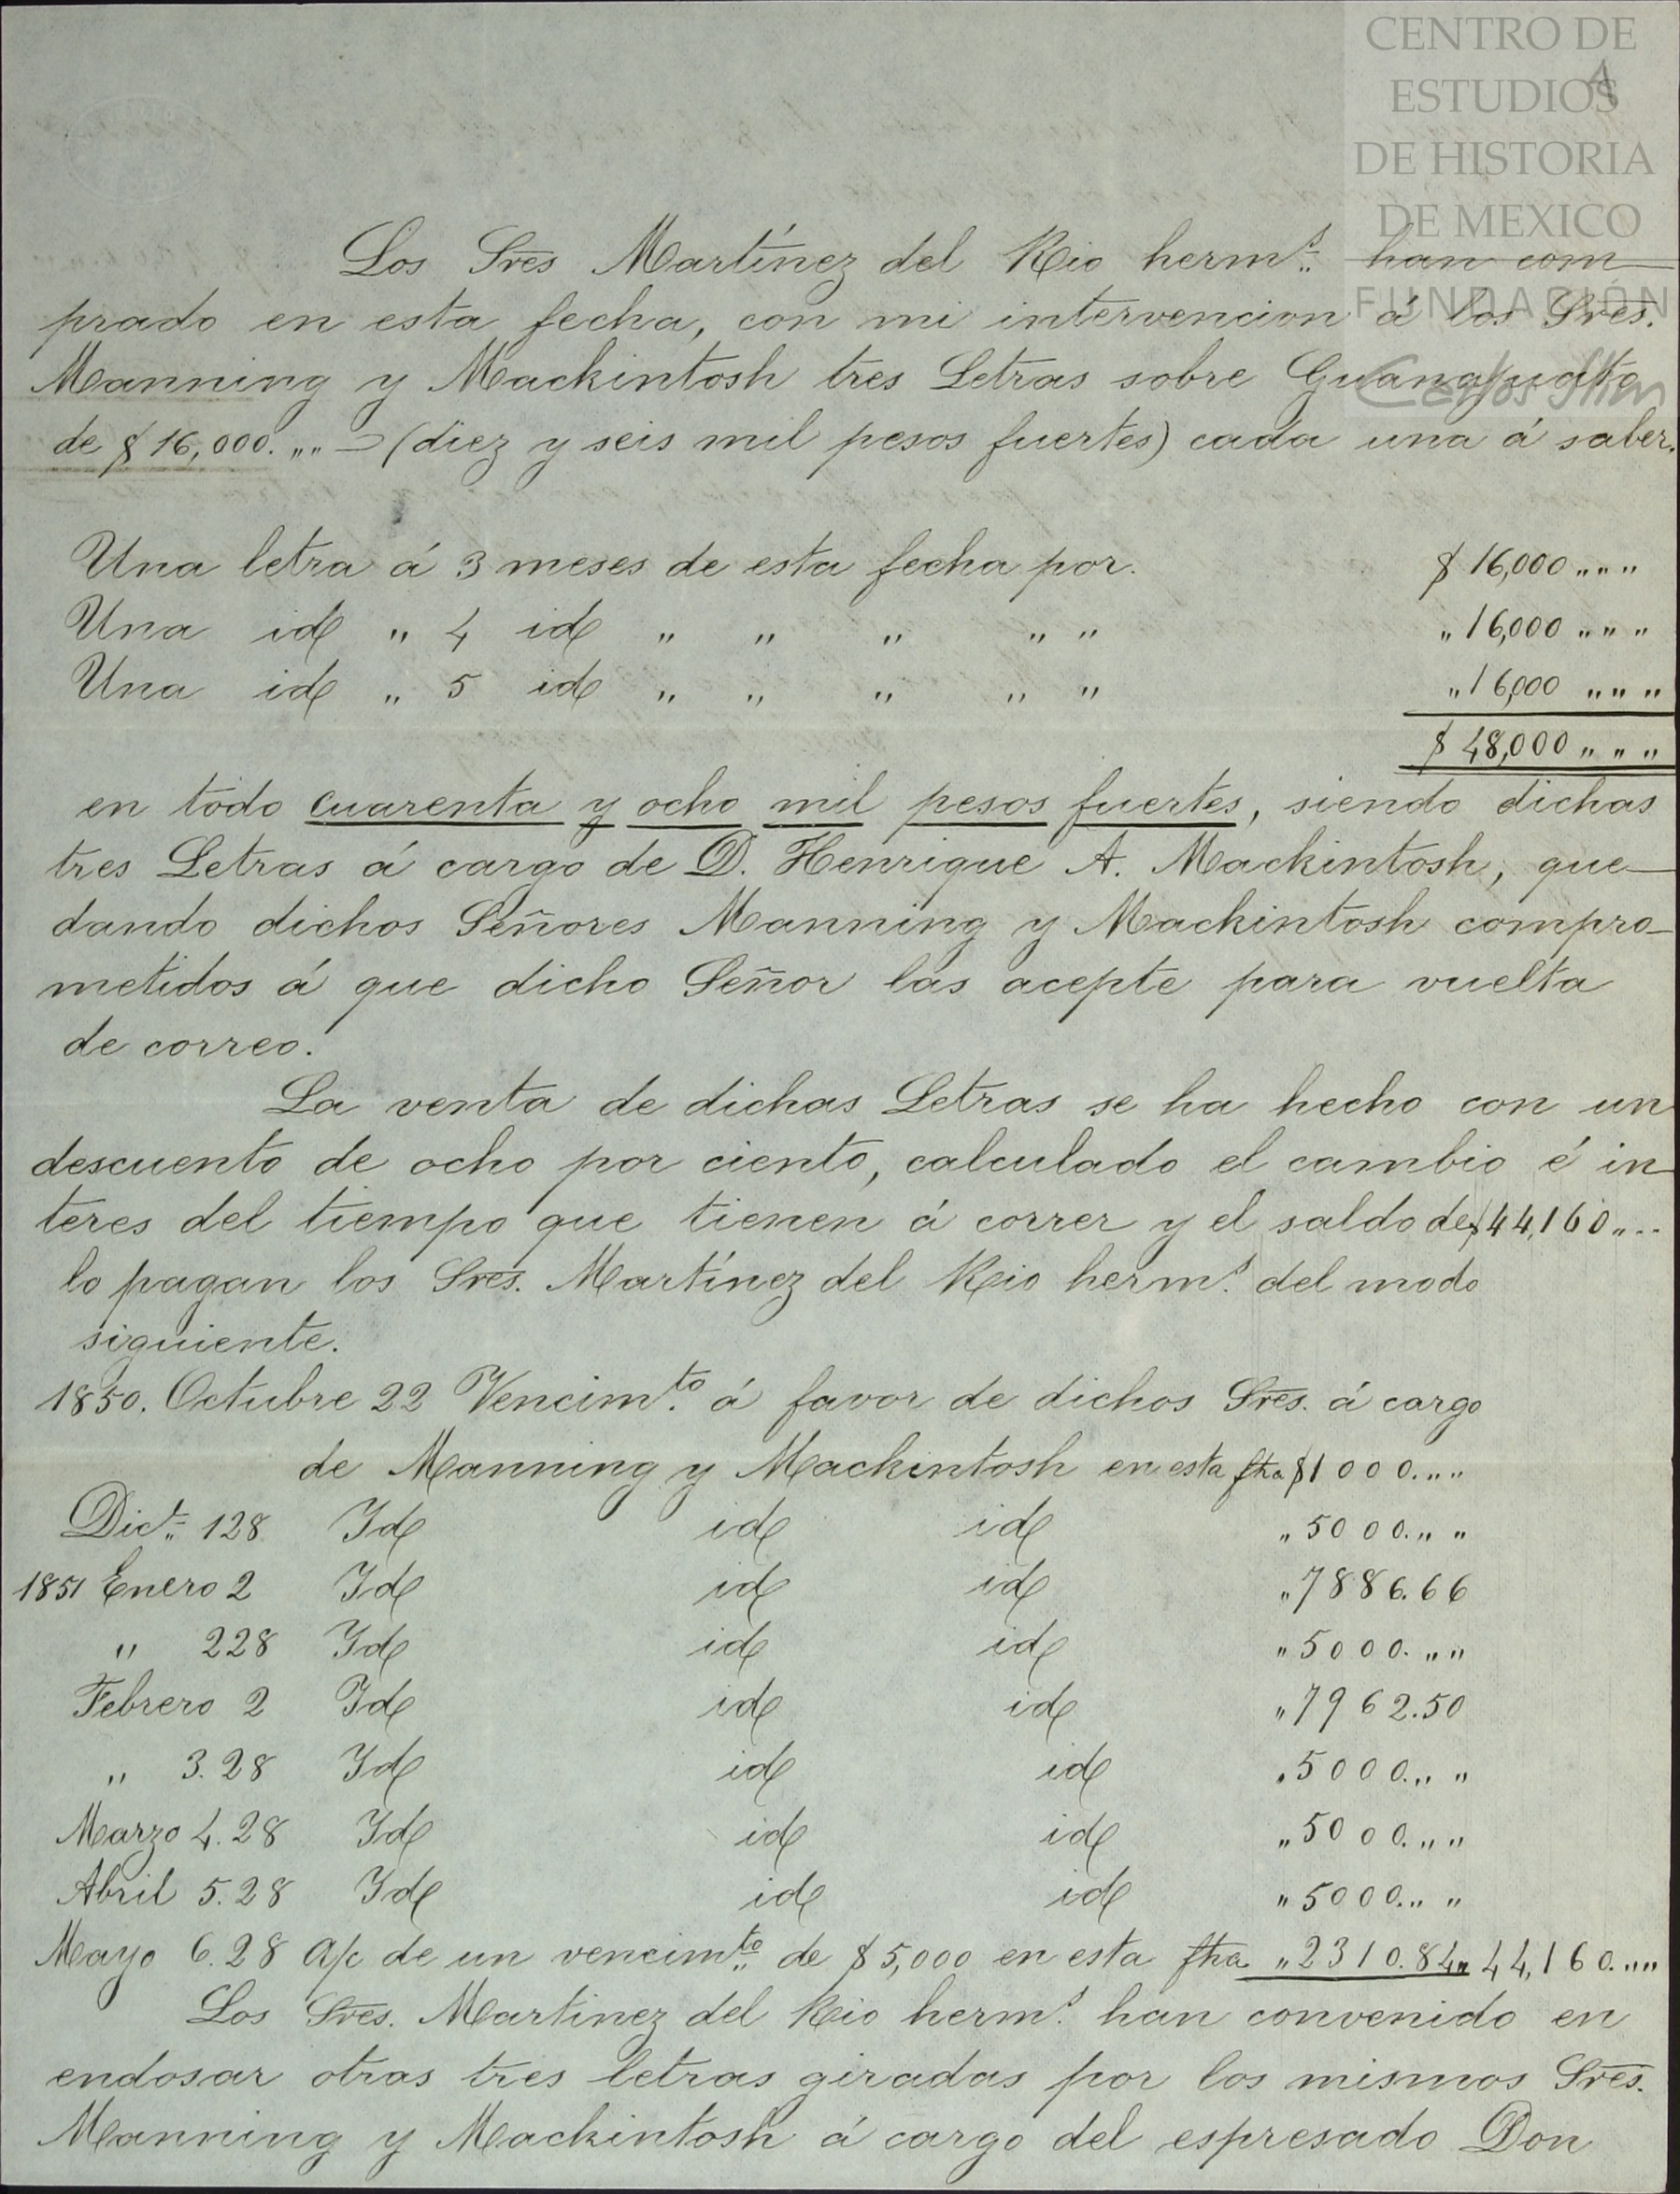 CENTRO DE
ESTUDIOS
DE HISTORIA
DE MEXICO
FUNDACIÓN
Carlos Slim
4
Los Sres Martínez del Rio herm.s han com
prado en esta fecha, con mi intervencion á los Sres.
Manning y Mackintosh tres Letras sobre Guanajuato
de $16,000. „„ = (diez y seis mil pesos fuertes) cada una á saber.
Una letra á 3 meses de esta fecha por. $ 16,000 „ „ „
Una id „ 4 id „ „ „ „ „ „ 16,000 „ „ „
Una id „ 5 id „ „ „ „ „ „ 16,000 „ „ „
$ 48,000 „ „ „
en todo cuarenta y ocho mil pesos fuertes, siendo dichas
tres Letras á cargo de D. Henrique A. Mackintosh, que-
dando dichos Señores Manning y Mackintosh compro-
metidos á que dicho Señor las acepte para vuelta
de correo.
La venta de dichas Letras se ha hecho con un
descuento de ocho por ciento, calculado el cambio é in-
teres del tiempo que tienen á correr y el saldo de $44,160 „ ..
lo pagan los Sres. Martínez del Rio herm.s del modo
siguiente.
1850. Octubre 22 Vencim.to á favor de dichos Sres. á cargo
de Manning y Mackintosh en esta fha $1000. „ „
Dic.e 1 28 Id id id „ 5000. „ „
1851 Enero 2 Id id id „ 7886.66
„ 2 28 Id id id „ 5000. „ „
Febrero 2 Id id id „ 7962.50
„ 3. 28 Id id id „ 5000. „ „
Marzo 4. 28 Id id id „ 5000. „ „
Abril 5. 28 Id id id „ 5000. „ „
Mayo 6. 28 a/c de un vencim.to de $5,000 en esta fha „ 2310.84 „ 44,160. „ „
Los Sres. Martinez del Rio herm.s han convenido en
endosar otras tres letras giradas por los mismos Sres.
Manning y Mackintosh á cargo del espresado Don